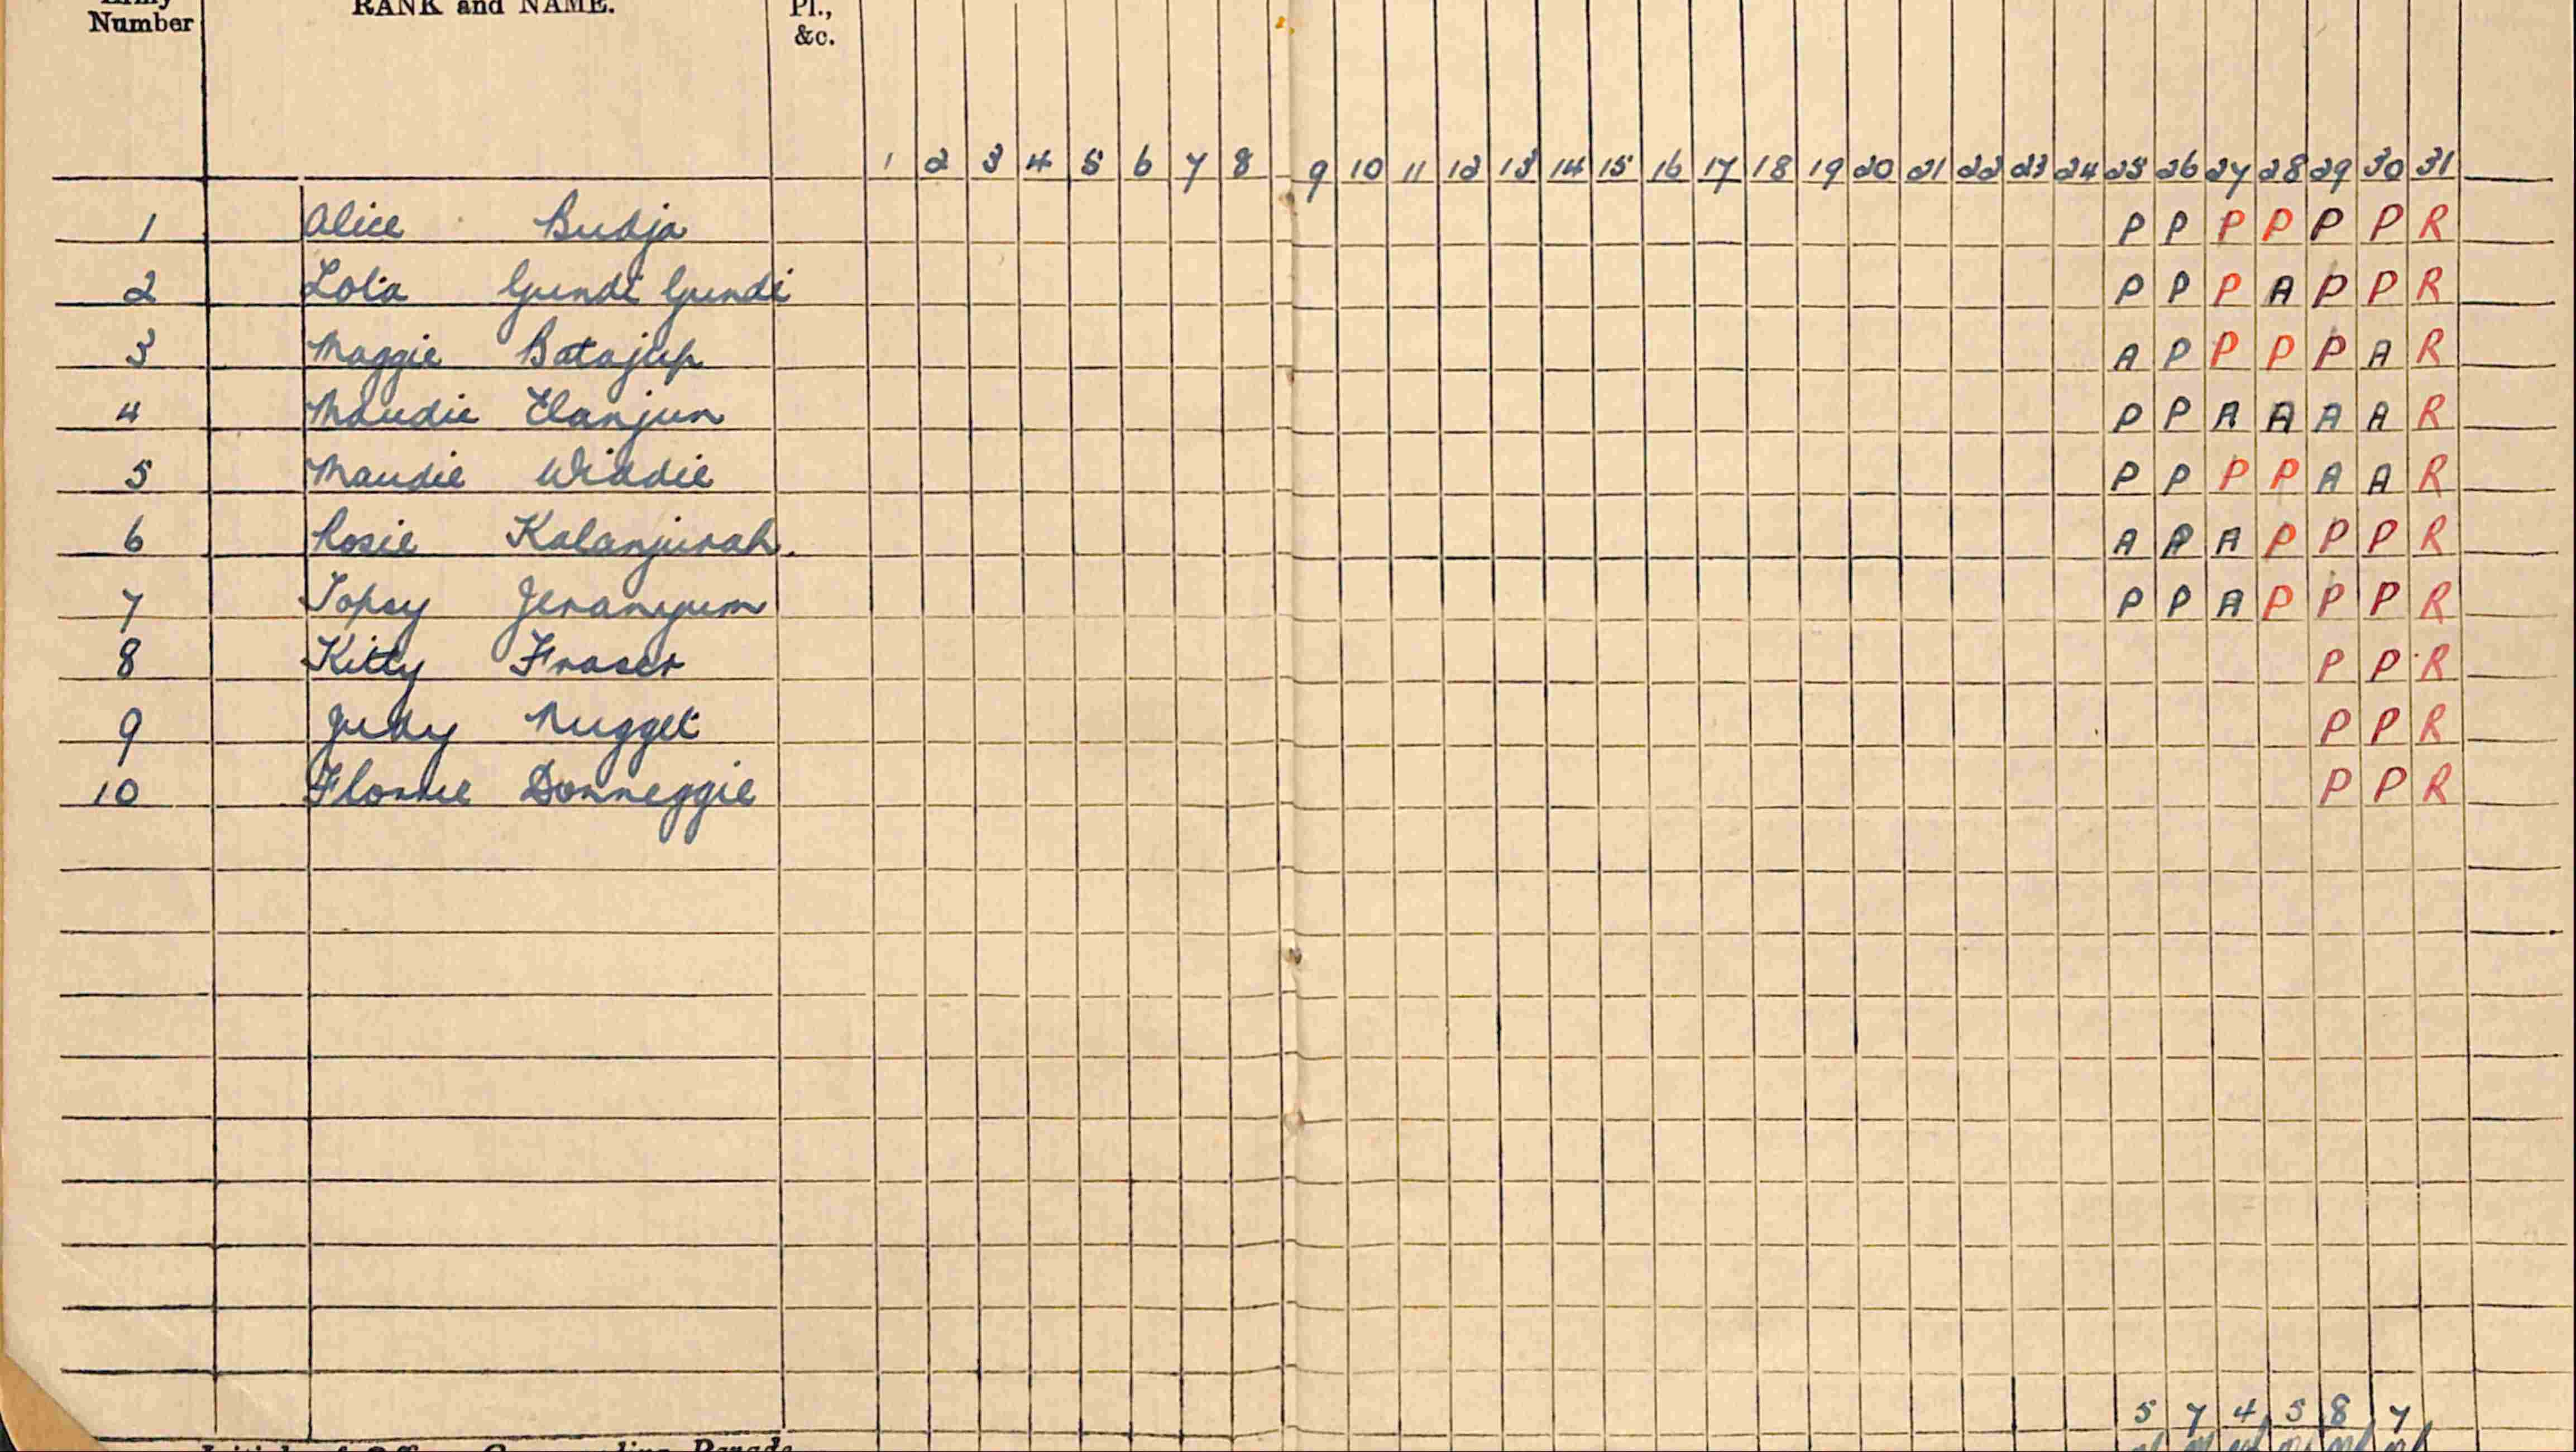 Number RANK and NAME. Pl.,
&c.
1 2 3 4 5 6 7 8 9 10 11 12 13 14 15 16 17 18 19 20 21 22 23 24 25 26 27 28 29 30 31
1 Alice Budja P P P P P P R
2 Lola Gundi Gundi P P P A P P R
3 Maggie Batajup A P P P P A R
4 Maudie Elanjun P P A A A A R
5 Maudie Widdie P P P P A A R
6 Rosie Kalanjurah. A P A P P P R
7 Topsy Jeranyum P P A P P P R
8 Kitty Fraser P P R
9 Judy Nugget P P R
10 Florrie Donneggie P P R
5 7 4 5 8 7